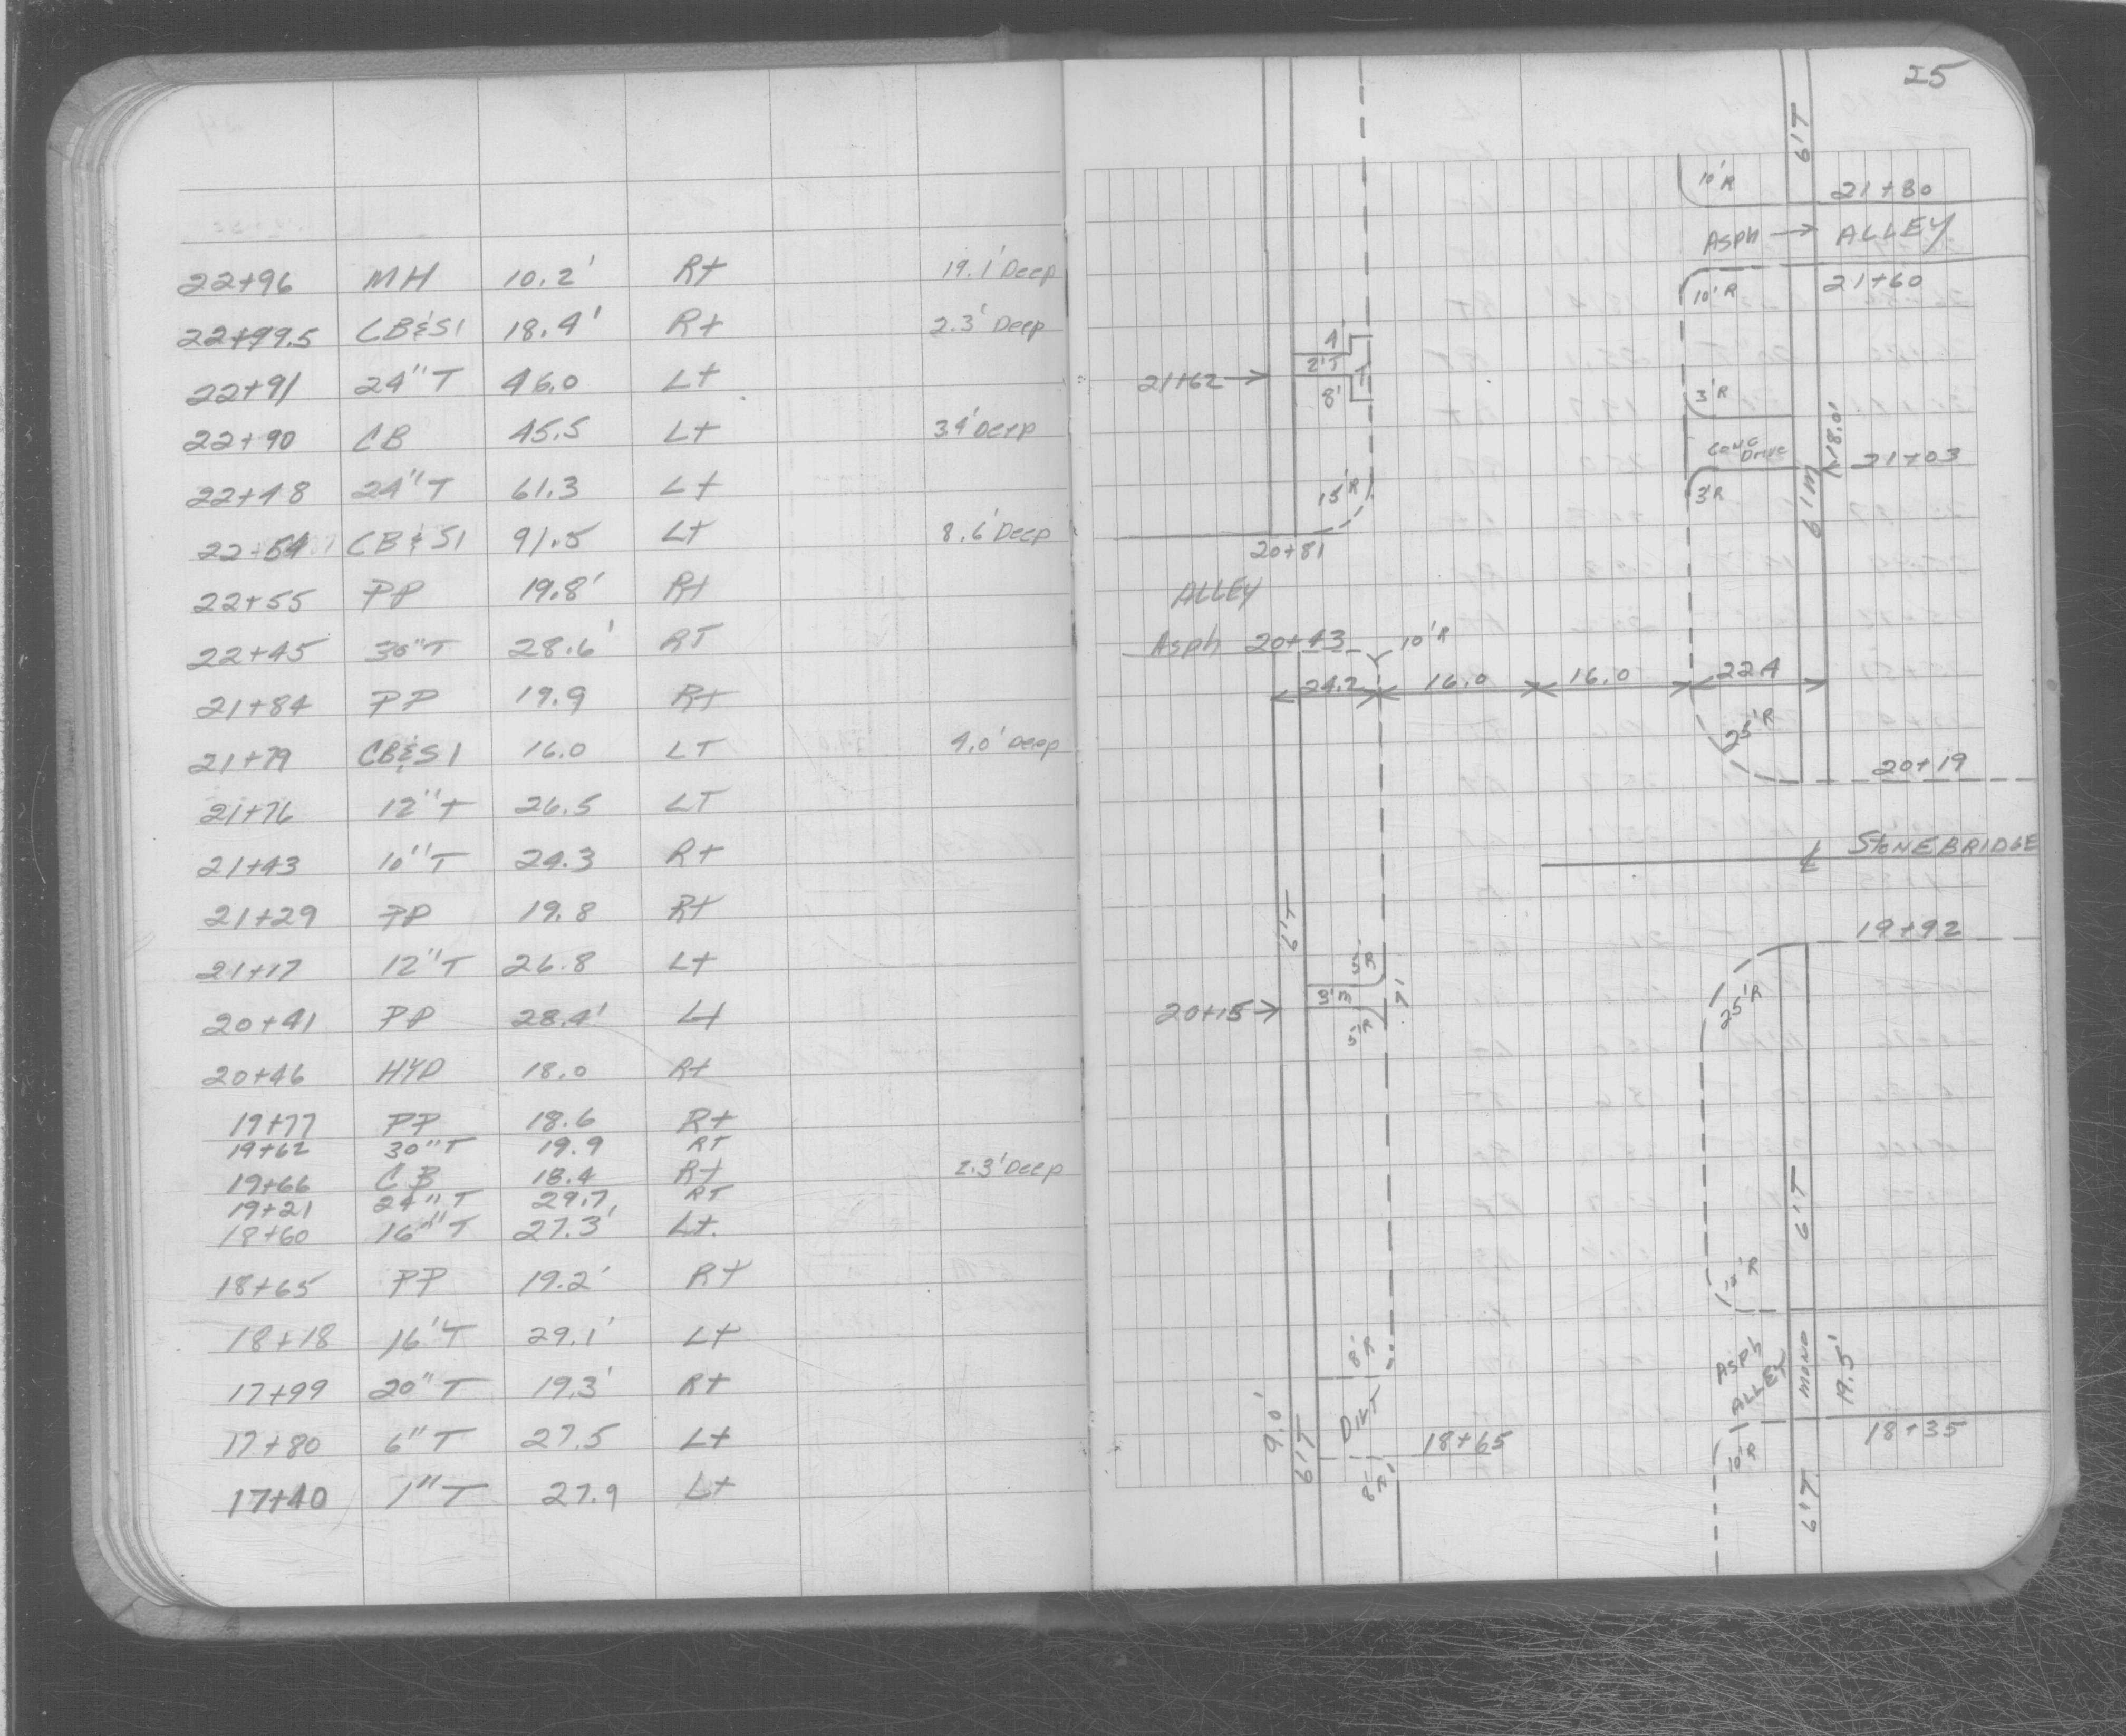 22+96 MH 10.2' Rt 19.1' Deep
22+99.5 CB&SI 18.4' Rt 2.3' Deep
22+91 24"T 46.0 Lt
22+90 CB 45.5 Lt 3.4' Deep
22+48 24"T 61.3 Lt
22+54 CB&SI 91.5 Lt 8.6' Deep
22+55 PP 19.8' Rt
22+45 30"T 28.6' RT
21+84 PP 19.9 Rt
21+79 CB&SI 16.0 LT 4.0' Deep
21+76 12"T 26.5 LT
21+43 10"T 24.3 Rt
21+29 PP 19.8 Rt
21+17 12"T 26.8 Lt
20+41 PP 28.4' Lt
20+46 HYD 18.0 Rt
19+77 PP 18.6 Rt
19+62 30"T 19.9 RT
19+66 CB 18.4 Rt 2.3' Deep
19+21 24"T 29.7 RT
18+60 16"T 27.3 Lt.
18+65 PP 19.2' Rt
18+18 16'T 29.1' Lt
17+99 20"T 19.3' Rt
17+80 6"T 27.5 Lt
17+40 1"T 27.9 Lt
25
6'T
10'R 21+80
Asph → ALLEY
10'R 21+60
4'
21+62 → 2'T
8'
3'R
18.0'
Conc Drive 21+03
15'R 3'R 6'M
20+81
ALLEY
Asph 20+43 10'R
24.2 16.0 16.0 22.4
25'R
20+19
℄ STONEBRIDGE
6'T 19+92
5'R
20+15 → 3'M 7'
5'R 25'R
6'T
15'R
8'R
Asph ALLEY MONO 19.5'
9.0' 6'T DIRT
18+65 18+35
8'R 10'R 6'T